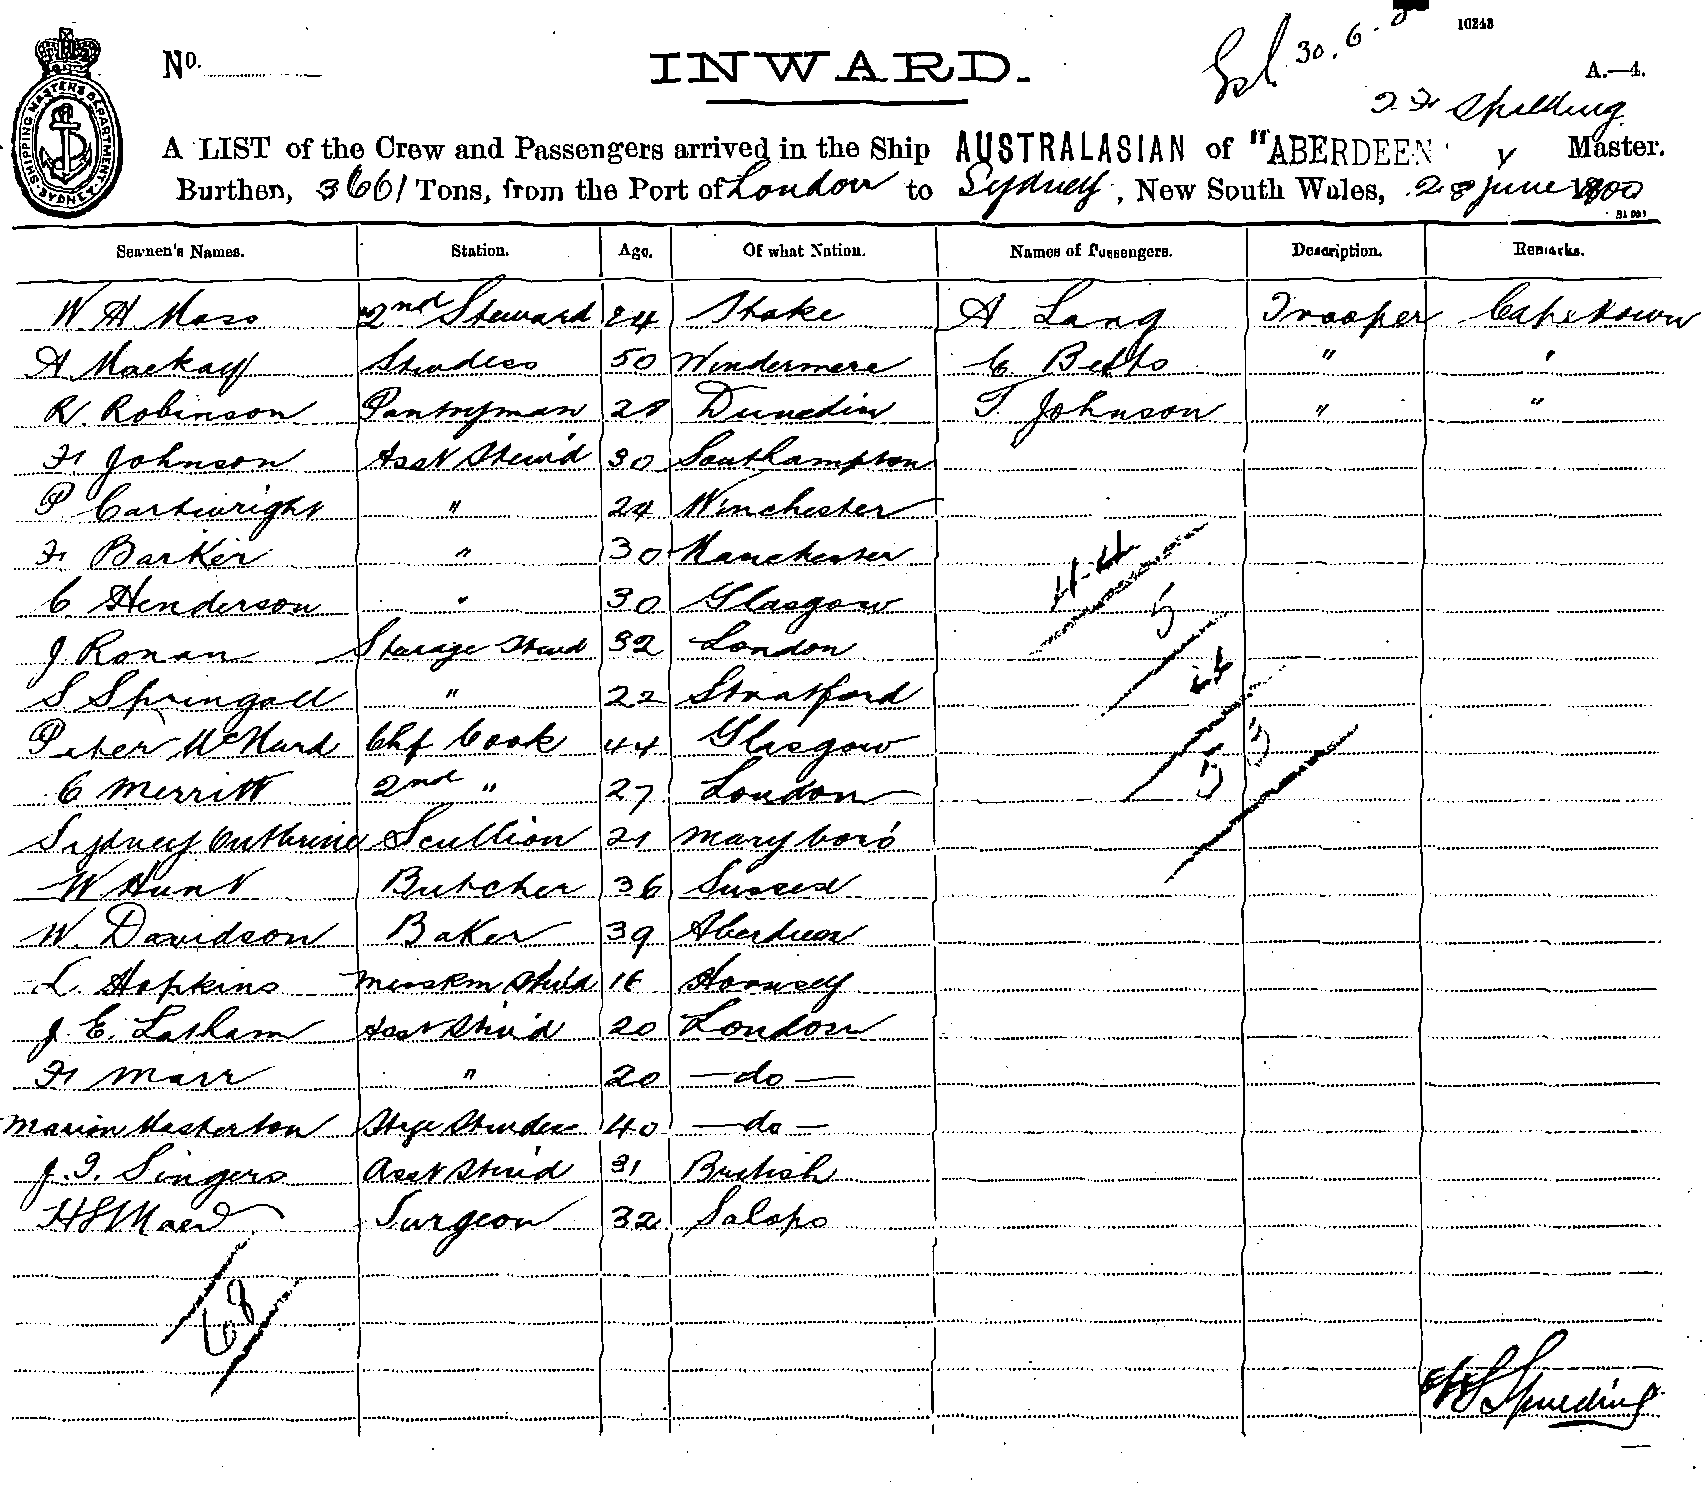 10243
30. 6.
No.
INWARD.
A.—4.
Spalding
A LIST of the Crew and Passengers arrived in the Ship AUSTRALASIAN of "ABERDEEN" Master.
Burthen, 3661 Tons, from the Port of London to Sydney, New South Wales, 28 June 1900
Seamen's Names. Station. Age. Of what Nation. Names of Passengers. Description. Remarks.
W H Moss 2nd Steward 24 Stoke A Lang Trooper Capetown
A Mackay Stewdess 50 Windermere C Betts " "
R. Robinson Pantryman 28 Dunedin T. Johnson " "
F. Johnson Asst Stew'd 30 Southampton
P Cartwright " 24 Winchester
F. Barker " 30 Manchester
C Henderson " 30 Glasgow
J Ronan Sterage Stewd 32 London
S Springall " 22 Stratford
Peter McNurd Chf Cook 44 Glasgow
C Merritt 2nd " 27 London
Sydney Scullion 21 Maryboro'
W Hunt Butcher 36 Sussex
W. Davidson Baker 39 Aberdeen
L. Hopkins Messrm Stew'd 16
J. E. Latham Asst Stew'd 20 London
F. Marr " 20 —do—
Marion Masterton Stge Stewdess 40 —do—
J. T. Singers Asst Stew'd 31 British
Surgeon 32 Salop
44
5
44
53
68
Spalding